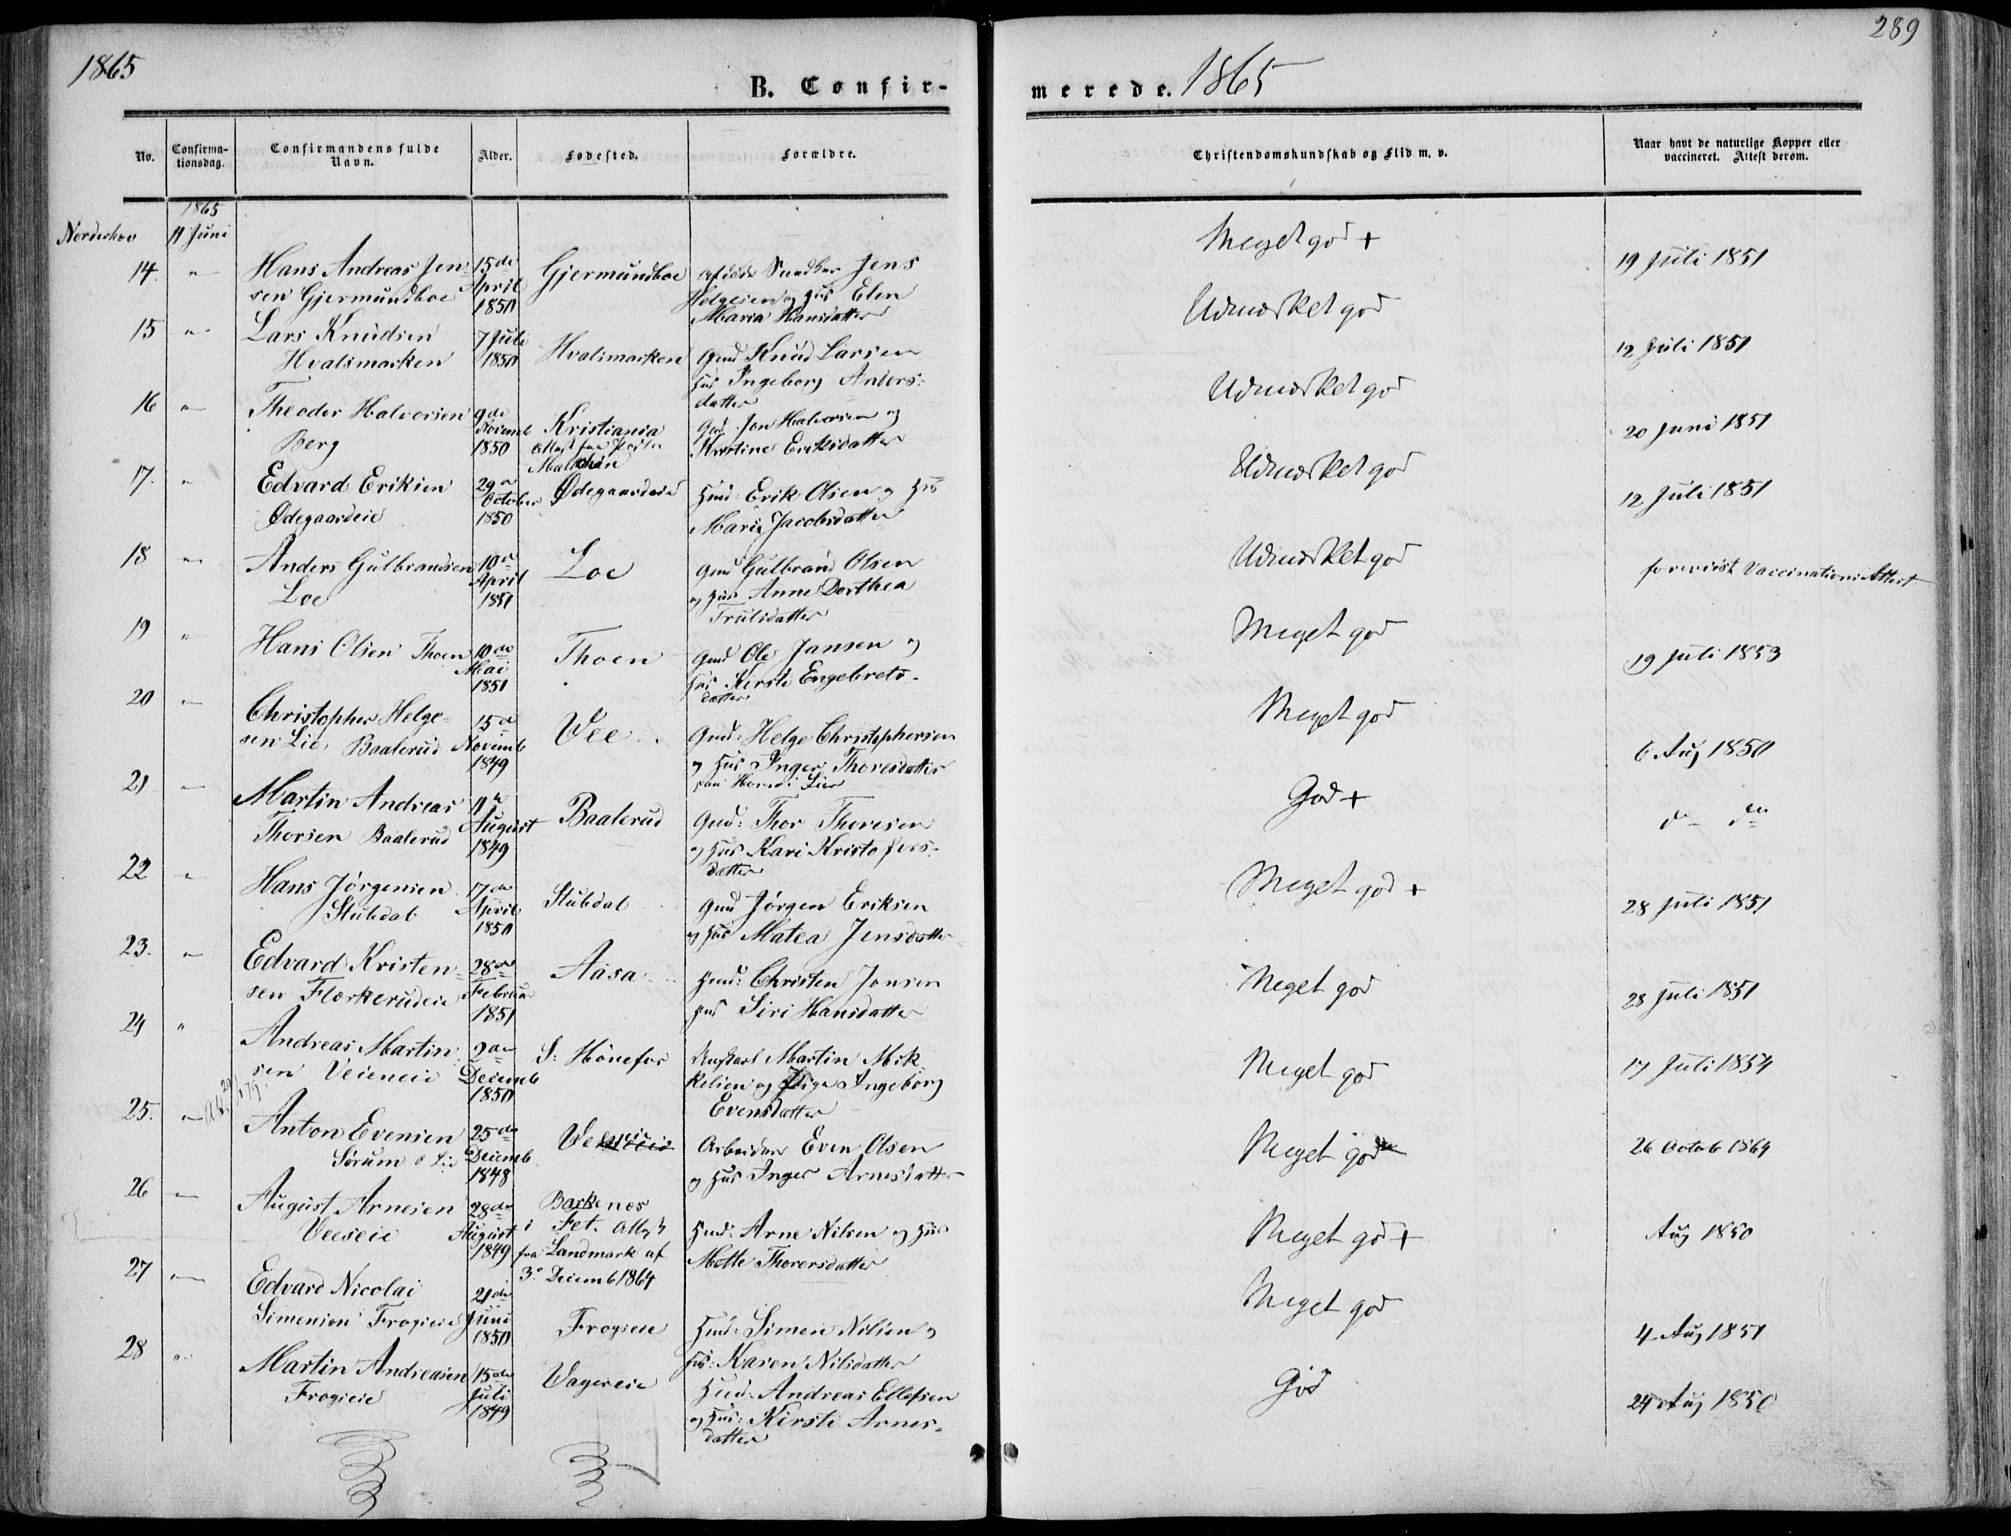 1865
B. Confir-
No.
Confirma-
tionsdag.
Confirmandens fulde
Navn.
Alder.
Fødested.
Forældre.
1865
Norderhov 11 Juni
14. " Hans Andreas Jen- 15de Gjermundboe Jens
sen Gjermundboe April Helgesen og Hus Elen
1850 Maria Hansdatter
15 " Lars Knudsen 7 Juli
Hvalsmarken 1850 Hvalsmarken Gmd Knud Larsen
Hus Ingeborg Anders-
datter
16 " Theodor Halvorsen 9de
Berg Novemb Kristiania Gmd Jon Halvorsen og
1850 Kirstine Eriksdatter
17. " Edvard Eriksen 29de Ødegaardeie Hmd: Erik Olsen og Hus
Ødegaardeie October Marie Jacobsdatter
1850
18 " Anders Gulbrandsen 10de Loe Gmd Gulbrand Olsen
Loe April og Hus Anne Dorthea
1851 Trulsdatter
19 " Hans Olsen Thoen 10de Thoen Gmd Ole Jansen og
Mai Hus Kirsti Engebrets-
1851 datter
20 " Christopher Helge- 15de Vee Gmd: Helge Christophersen
sen Lie, Baalerud Novemb og Hus Inger Thoresdatter
1849
21 " Martin Andreas 11te Baalerud Gmd: Thor Thoresen
Thorsen Baalerud August og Hus Kari Kristofers-
1849 datter
22 " Hans Jørgensen 17de Stubdal Gmd Jørgen Eriksen
Stubdal April og Hus Matea Jensdatter
1850
23. " Edvard Kristen- 28de Aasa Hmd: Christen Jonsen
sen Flerkerudeie Februar Hus Siri Hansdatter
1851
24 " Andreas Martin- 2den S: Hönefos Martin Mik-
sen Veieneie Decemb kelsen og Pige Ingeborg
1850 Evensdatter
25. " Anton Evensen 25de Arbeider Even Olsen
Sørum Decemb og Hus Inger Arnesdatter
1848
26 " August Arnesen 28de Barkenæs
Veeseie August i Fet. Attest Hmd: Arne Nilsen og Hus
1849 fra Landmark af Mette Thorersdatter
3 Decemb 1864
27 " Edvard Nicolai 21de
Simensen Frogieie Juni Frogieie Hmd: Simen Nilsen og
1850 Hus: Karen Nilsdatter
28 " Martin Andreasen 15de Vagereie Hmd: Andreas Ellefsen
Frogieie Juli og Hus: Kirsti Arnes-
1849 datter
289
merede. 1865
Christendomskundskab og Flid m. v.
Naar havt de naturlige Kopper eller
vaccineret. Attest derom.
Meget god +
19 Juli 1851
Udmærket god
12 Juli 1851
Udmærket god
20 Juni 1851
Udmærket god
12 Juli 1851
Udmærket god
forevist Vaccinations Attest
Meget god
19 Juli 1853
Meget god
6 Aug 1850
God +
Meget god +
28 Juli 1851
Meget god
28 Juli 1851
Meget god
17 Juli 1854
Meget god
26 Octob 1864
Meget god +
Aug 1850
Meget god
4 Aug 1851
God
24 Aug 1850